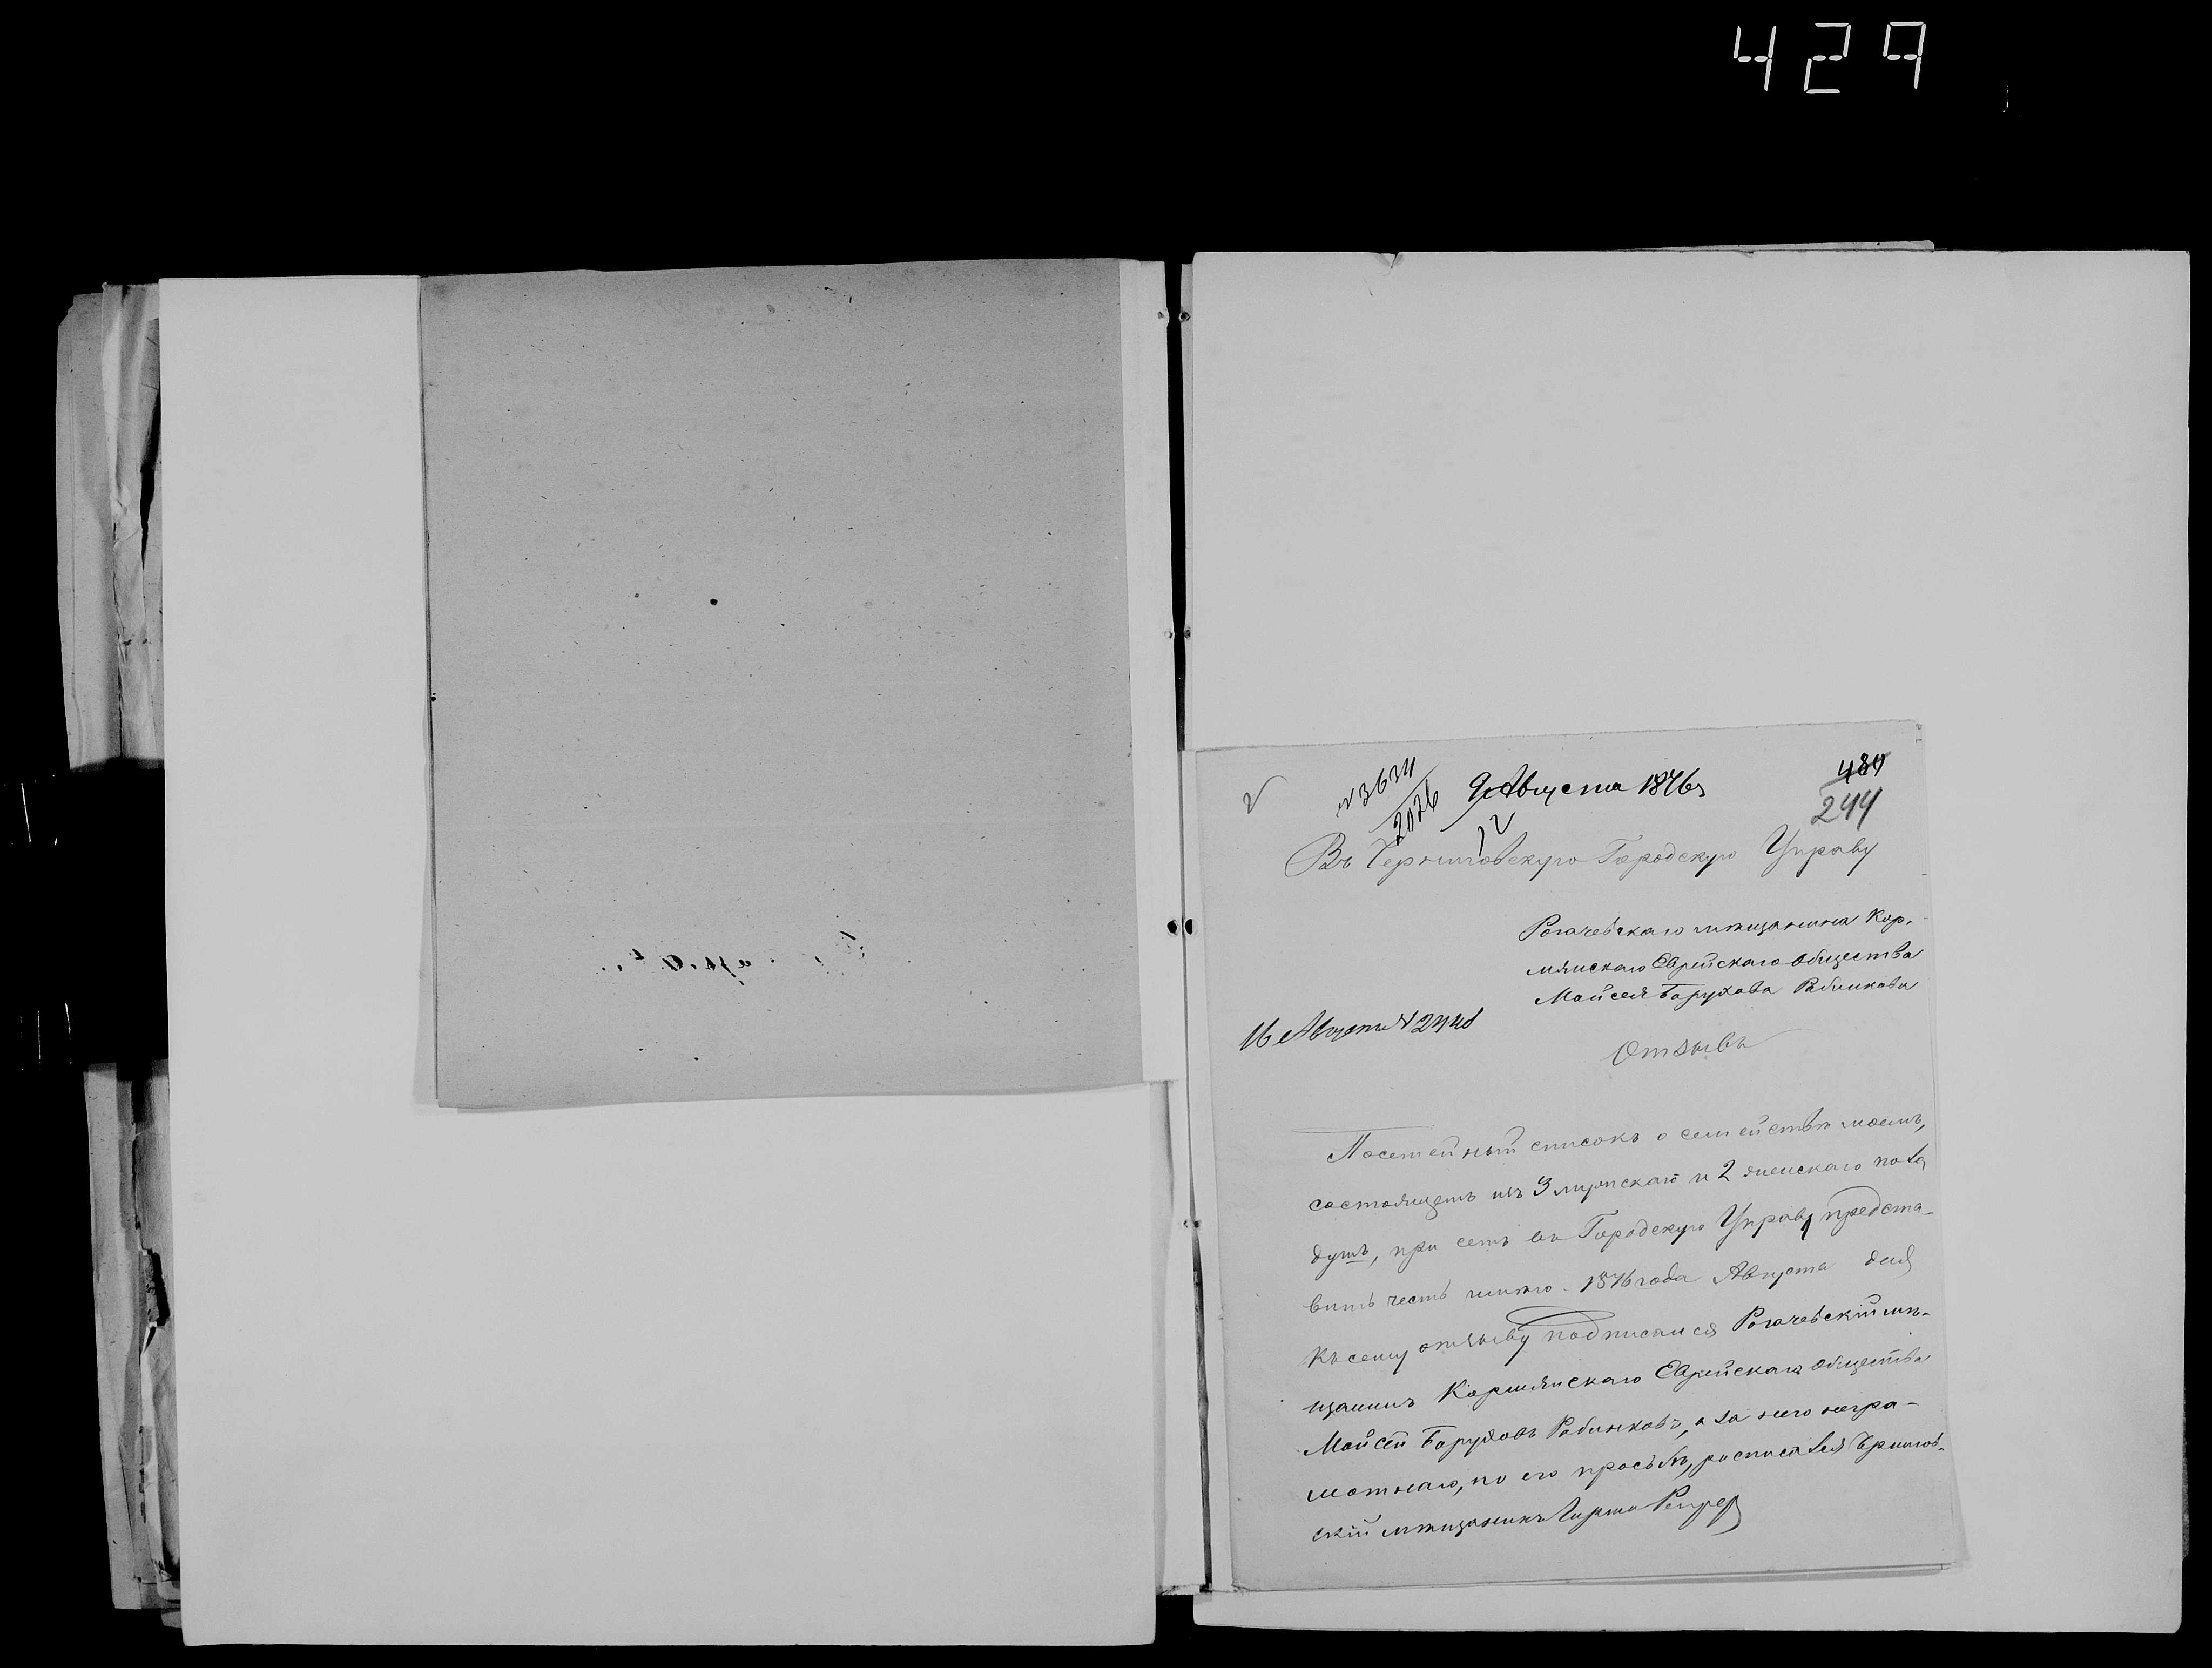 429
484
244
№ 3634
2026
9 Августа 1876 г
12
Въ Черниговскую Городскую Управу
Рогачевскаго мѣщанина Кор-
мянскаго Еврейскаго общества
Мойсея Борухова Рабинкова
16 Августа №
Отзывъ
Посемейный списокъ о семействѣ моемъ,
состоящемъ изъ 3 мужскаго и 2 женскаго пола
душъ, при семъ въ Городскую Управу предста-
вить честь имѣю. 1876 года Августа дня
Къ сему отзыву подписался Рогачевскій мѣ-
щанинъ Кормянскаго Еврейскаго общества
Мойсей Боруховъ Рабинковъ, а за него негра-
мотнаго, по его просьбѣ, росписался Чернигов-
скій мѣщанинъ Гирша